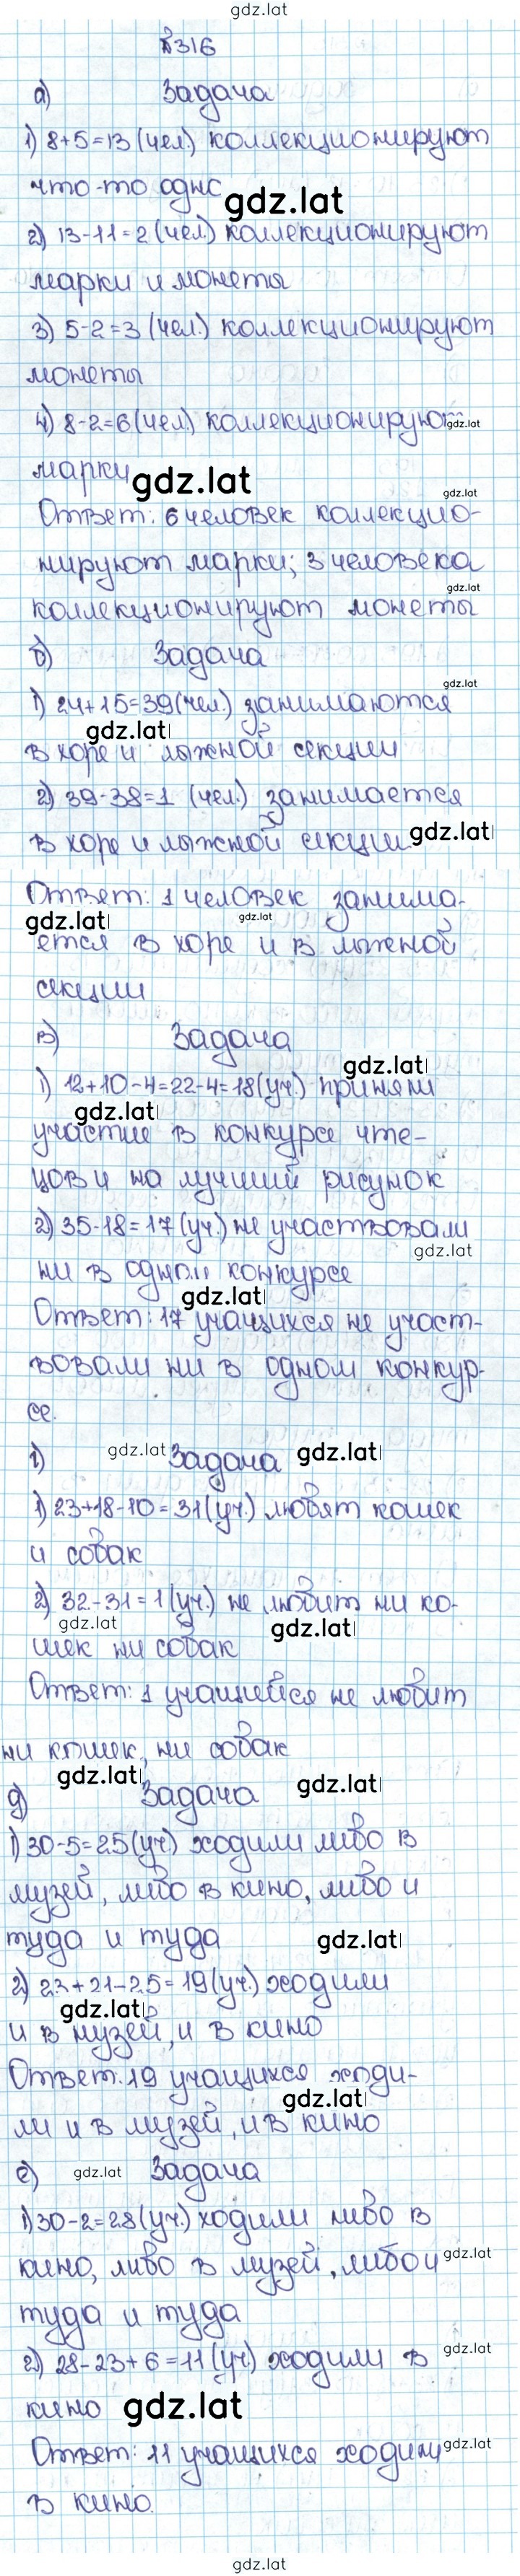 gdz.lat
№316
а) Задача
1) 8+5=13 (чел.) коллекционируют
что-то одно
gdz.lat
2) 13-11=2 (чел.) коллекционируют
марки и монеты
3) 5-2=3 (чел.) коллекционируют
монеты
4) 8-2=6 (чел.) коллекционируют
gdz.lat
марки
gdz.lat
gdz.lat
Ответ: 6 человек коллекцио-
нируют марки; 3 человека
gdz.lat
коллекционируют монеты
б) Задача
gdz.lat
1) 24+15=39 (чел.) занимаются
gdz.lat
в хоре и лыжной секции
2) 39-38=1 (чел.) занимается
в хоре и лыжной секции
gdz.lat
Ответ: 1 человек занима-
gdz.lat gdz.lat
ется в хоре и в лыжной
секции
в) Задача
gdz.lat
1) 12+10-4=22-4=18 (уч.) приняли
gdz.lat
участие в конкурсе чте-
цов и на лучший рисунок
2) 35-18=17 (уч.) не участвовали
gdz.lat
ни в одном конкурсе
gdz.lat
Ответ: 17 учащихся не участ-
вовали ни в одном конкур-
се.
г) gdz.lat Задача gdz.lat
1) 23+18-10=31 (уч.) любят кошек
и собак
2) 32-31=1 (уч.) не любит ни ко-
gdz.lat gdz.lat
шек ни собак
Ответ: 1 учащийся не любит
ни кошек, ни собак
gdz.lat gdz.lat
д) Задача
1) 30-5=25 (уч.) ходили либо в
музей, либо в кино, либо и
туда и туда
gdz.lat
2) 23+21-25=19 (уч.) ходили
gdz.lat
и в музей, и в кино
Ответ: 19 учащихся ходи-
gdz.lat
ли и в музей, и в кино
е) gdz.lat Задача
1) 30-2=28 (уч.) ходили либо в
кино, либо в музей, либо и
gdz.lat
туда и туда
gdz.lat
2) 28-23+6=11 (уч.) ходили в
кино
gdz.lat
Ответ: 11 учащихся ходили
gdz.lat
в кино.
gdz.lat